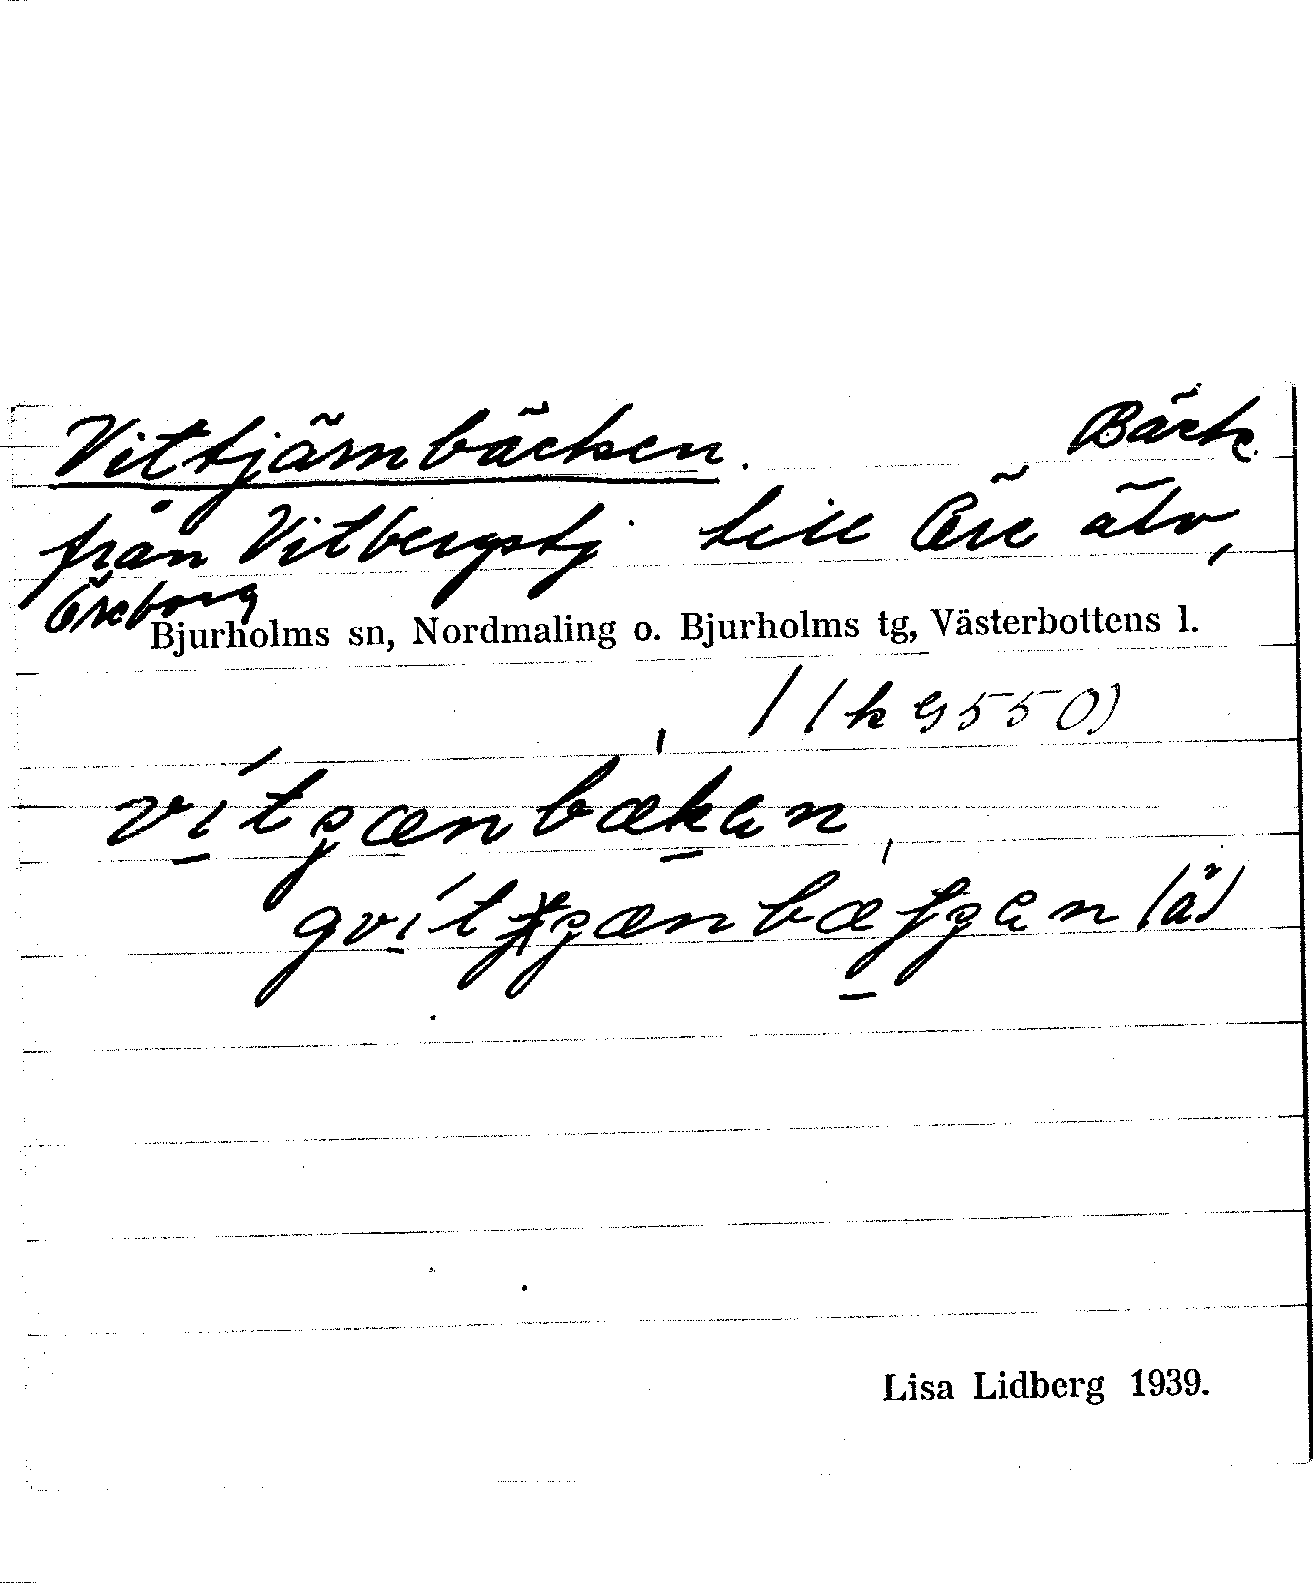 Vittjärnbäcken. Bäck
från Vitbergstj till Öre älv,
Öreborg
Bjurholms sn, Nordmaling o. Bjurholms tg, Västerbottens l.
/ (k 9550)
vitʒænbækɐn
gvitʒænbæʃʒɐn (ä)
Lisa Lidberg 1939.